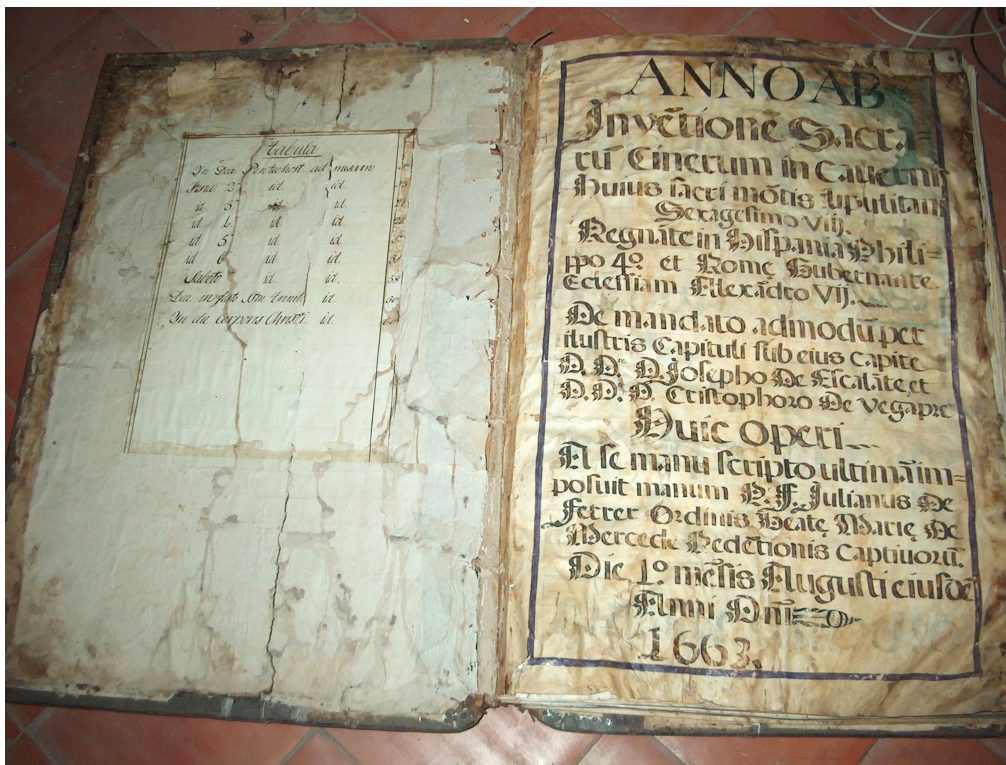 tabula
In Dca Pentichost. ad misam
Feria 2ª id. id.
id 3 id. id.
id 4 id. id.
id 5 id id.
id 6 id id.
Sabato id id. 
Dca in festo SSm trinit. id. 
In die Corporis Christi. id.
ANNO AB
Invẽtionẽ Sacra=
rũ Cinerum in Cavernis
huius sacri mõtis Ilipulitani
Sexagesimo Viij.
Regnãte in Hispania Phili=
ppo 4º. et Romę Gubernante
Eclessiam Alexãdro Vij.
De mandato admodũ per
ilustris Capituli sub eius capite
D. Dre. D. Josepho De Escalãte, et
D. D. D. Cristophoro De Vega pre
Huic operi
A se manu scripto ultimã im=
posuit manum P. F. Julianus De
Ferrer Ordinis Beatę Marię De
Mercede Redẽtionis Captivorũ.
Die 1º mẽsis Augusti eiusdẽ
Anni Dñi
1663.